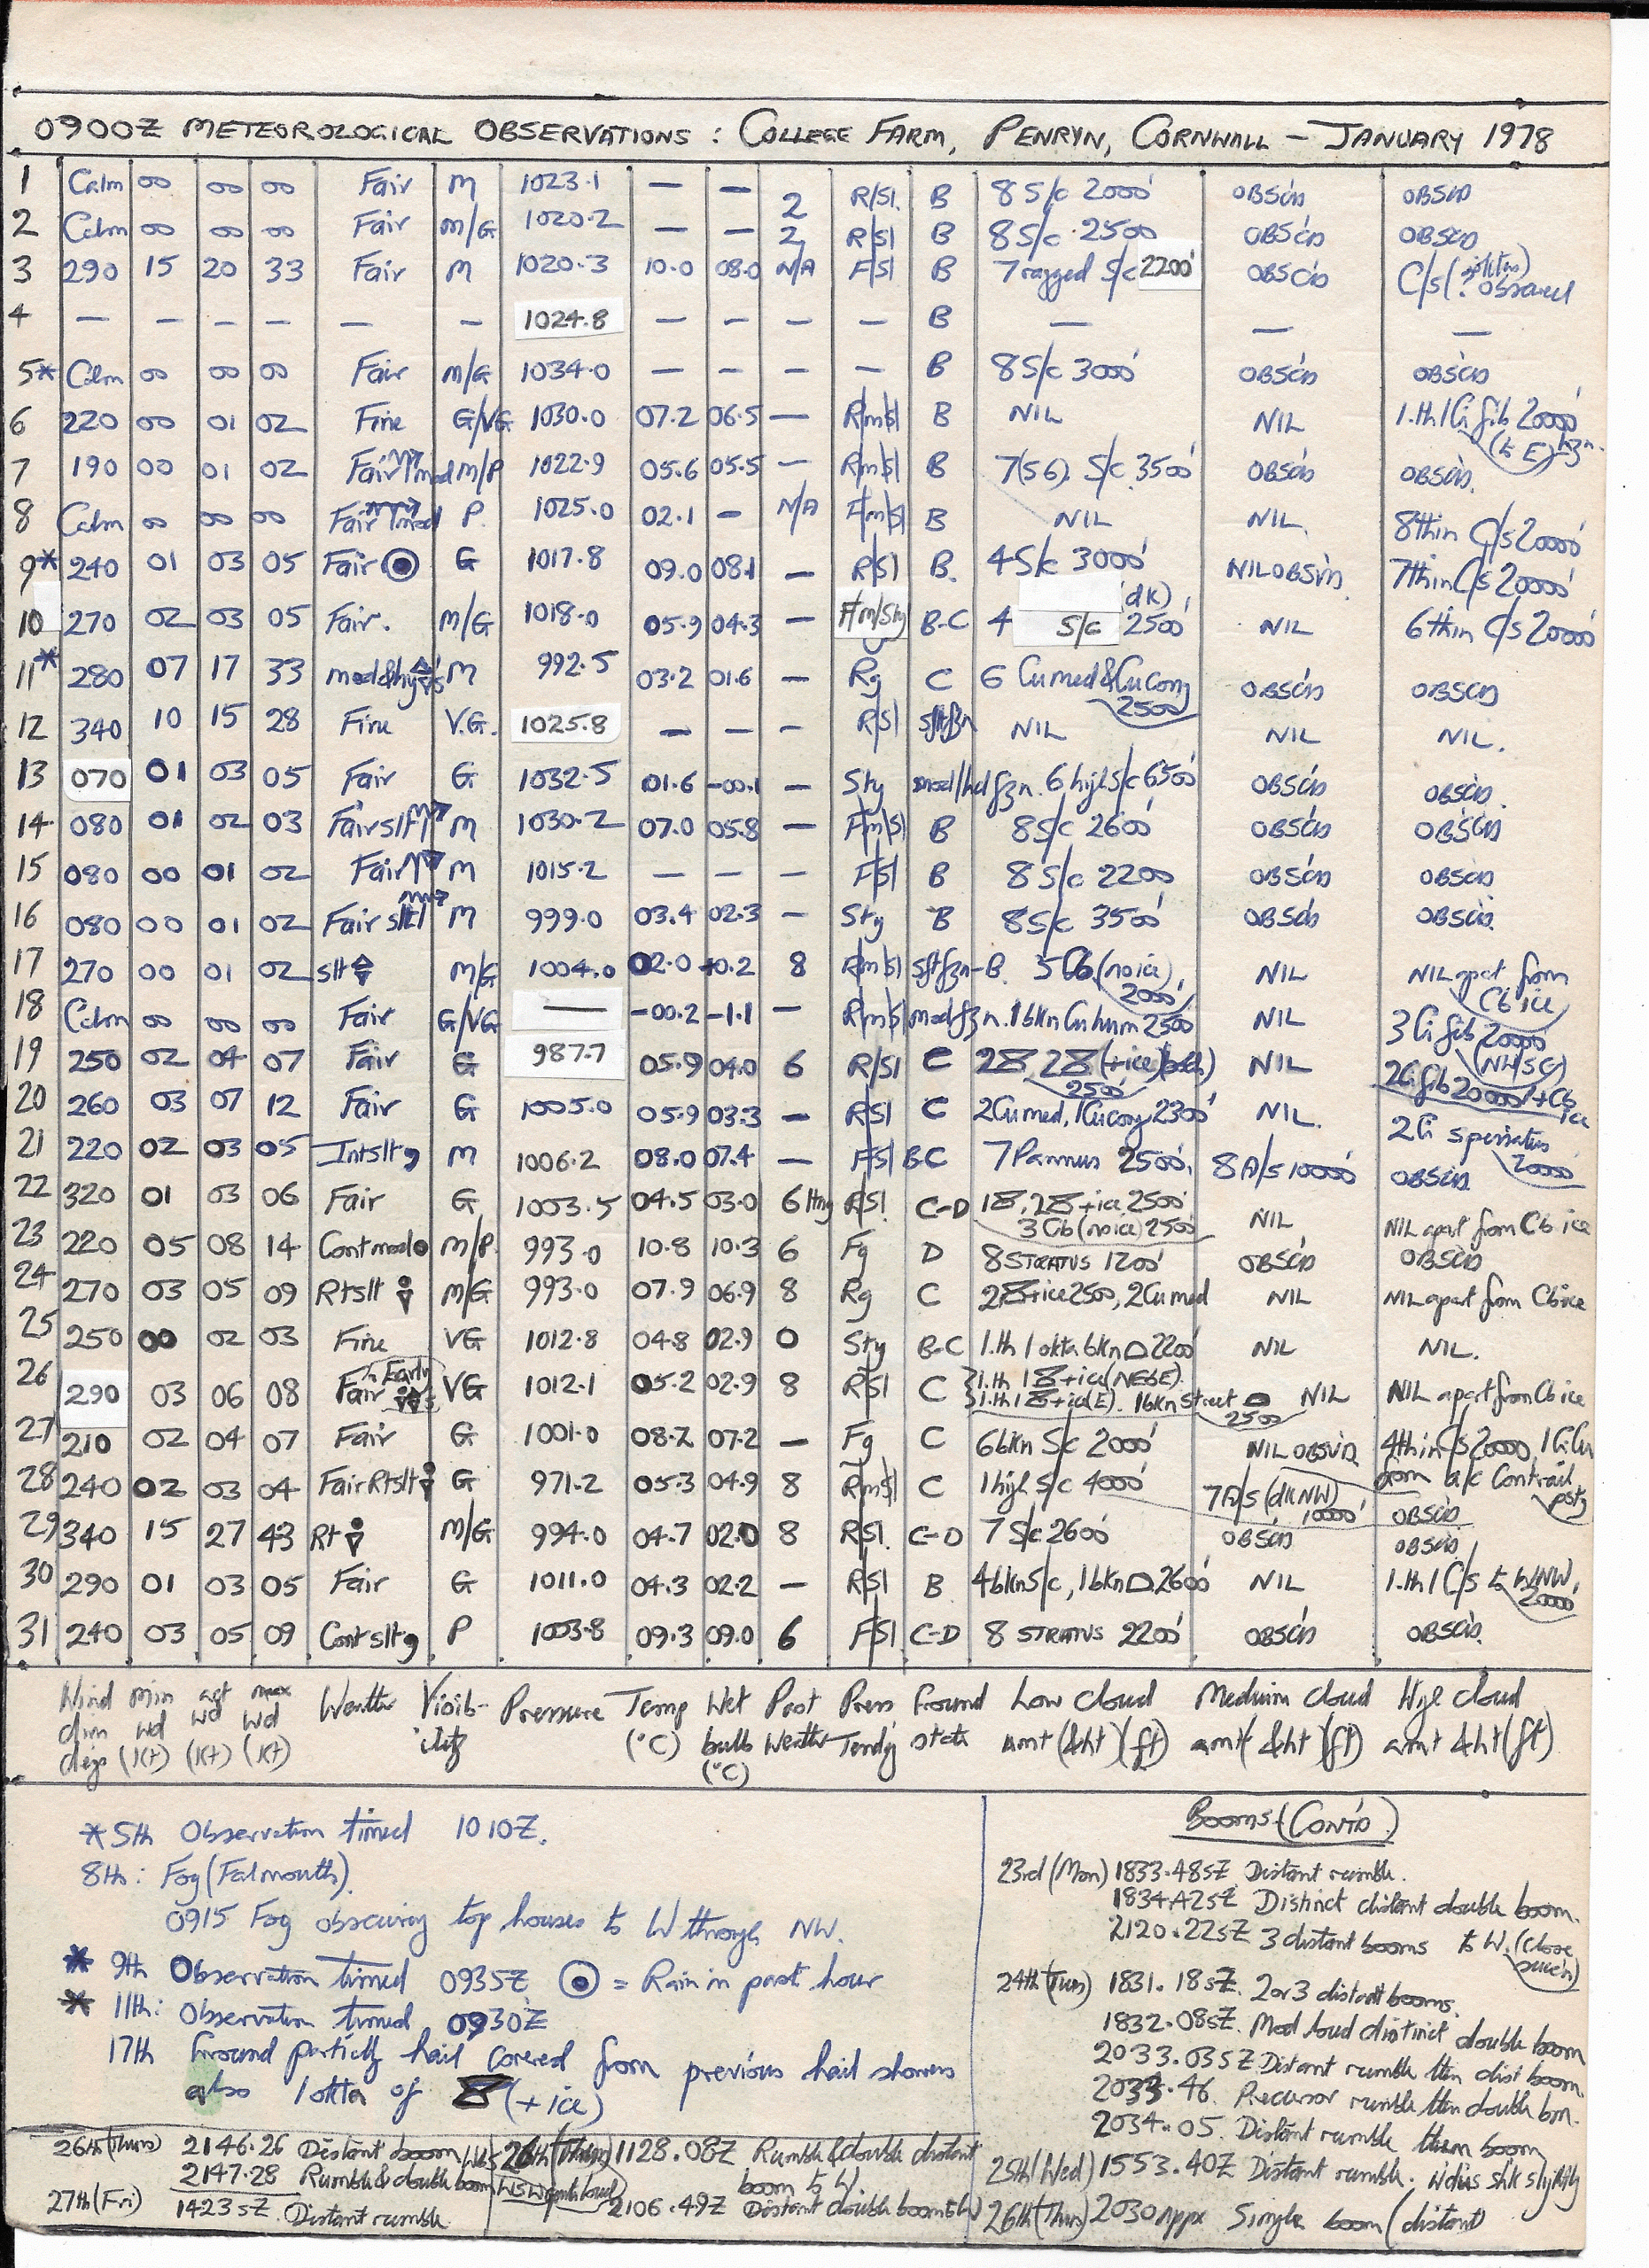 0900Z METEOROLOGICAL OBSERVATIONS : COLLEGE FARM, PENRYN, CORNWALL – JANUARY 1978
1 Calm 00 00 00 Fair M 1023.1 — — 2 R/Sl. B 8 S/c 2000' OBSC'D OBSC'D
2 Calm 00 00 00 Fair M/G 1020.2 — — 2 R/Sl B 8 S/c 2500 OBSC'D OBSC'D
3 290 15 20 33 Fair M 1020.3 10.0 08.0 N/A F/Sl B 7 ragged S/c 2200' OBSC'D C/s (? obscured
4 — — — — — — 1024.8 — — — — B — — —
5* Calm 00 00 00 Fair M/G 1034.0 — — — — B 8 S/c 3000' OBSC'D OBSC'D
6 220 00 01 02 Fine G/VG 1030.0 07.2 06.5 — Rm/Sl B NIL NIL 1.th 1 Ci fib 20000' (to E) hzn.
7 190 00 01 02 Fair mod M/P 1022.9 05.6 05.5 — Rm/Sl B 7(56) S/c 3500' OBSC'D OBSC'D.
8 Calm 00 00 00 Fair mod P. 1025.0 02.1 — N/A Fm/Sl B NIL NIL. 8 thin C/s 20000'
9* 240 01 03 05 Fair G 1017.8 09.0 08.1 — R/Sl B. 4 S/c 3000' NIL OBSV'D. 7 thin C/s 20000'
10 270 02 03 05 Fair. M/G 1018.0 05.9 04.3 — Fm/Sty B-C 4 (dk) S/c 2500' NIL 6 thin C/s 20000'
11* 280 07 17 33 mod&hvy M 992.5 03.2 01.6 — Rg C 6 Cu med & Cu cong 2500 OBSC'D OBSC'D
12 340 10 15 28 Fine V.G. 1025.8 — — — R/Sl sft fzn NIL NIL NIL.
13 070 01 03 05 Fair G 1032.5 01.6 -00.1 — Sty mod/hd fzn. 6 high S/c 6500' OBSC'D OBSC'D.
14 080 01 02 03 Fair slt M 1030.2 07.0 05.8 — Fm/Sl B 8 S/c 2600' OBSC'D OBSC'D
15 080 00 01 02 Fair M 1015.2 — — — F/Sl B 8 S/c 2200 OBSC'D OBSC'D
16 080 00 01 02 Fair slt M 999.0 03.4 02.3 — Sty B 8 S/c 3500' OBSC'D OBSC'D.
17 270 00 01 02 slt M/G 1004.0 02.0 +0.2 8 Rm/Sl sft fzn-B. 5 Cb (no ice) 2000' NIL NIL apart from Cb ice
18 Calm 00 00 00 Fair G/VG — -00.2 -1.1 — Rm/Sl mod fzn. 1 bkn Cu hum 2500' NIL 3 Ci fib 20000
19 250 02 04 07 Fair G 987.7 05.9 04.0 6 R/Sl C 2 2 (+ice) 2500' NIL 2 Ci fib 20000' + Cb ice
20 260 03 07 12 Fair G 1005.0 05.9 03.3 — R/Sl C 2 Cu med, 1 Cu cong 2300' NIL. 2 Ci spissatus 20000'
21 220 02 03 05 Int slt , M 1006.2 08.0 07.4 — F/Sl B-C 7 Pannus 2500'. 8 A/s 10000' OBSC'D
22 320 01 03 06 Fair G 1003.5 04.5 03.0 6 R/Sl. C-D 1 , 2 +ice 2500' 3 Cb (no ice) 2500' NIL NIL apart from Cb ice
23 220 05 08 14 Cont mod M/P. 993.0 10.8 10.3 6 Fg D 8 STRATUS 1200' OBSC'D OBSC'D
24 270 03 05 09 Rt slt M/G 993.0 07.9 06.9 8 Rg C 2 +ice 2500, 2 Cu med NIL NIL apart from Cb ice
25 250 00 02 03 Fine VG 1012.8 04.8 02.9 0 Sty B-C 1.th 1 okta bkn 2200' NIL NIL.
26 290 03 06 08 Fair Early VG 1012.1 05.2 02.9 8 R/Sl C 1.th 1 +ice (NE&E). 1.th 1 +ice (E). 1 bkn street 2500 NIL NIL apart from Cb ice
27 210 02 04 07 Fair G 1001.0 08.2 07.2 — Fg C 6 bkn S/c 2000' NIL OBSV'D. 4 thin C/s 20000, 1 Ci Cu from a/c Contrail
28 240 02 03 04 Fair Rt slt G 971.2 05.3 04.9 8 Rm/Sl C 1 high S/c 4000' 7 A/s (dk NW) 10000' OBSC'D
29 340 15 27 43 Rt M/G 994.0 04.7 02.0 8 R/Sl. C-D 7 S/c 2600' OBSC'D OBSC'D
30 290 01 03 05 Fair G 1011.0 04.3 02.2 — R/Sl B 4 bkn S/c, 1 bkn 2600' NIL 1.th 1 C/s to WNW, 20000
31 240 03 05 09 Cont slt , P 1003.8 09.3 09.0 6 F/Sl C-D 8 STRATUS 2200' OBSC'D OBSC'D.
Wind min act max Weather Visib- Pressure Temp Wet Past Press Ground Low cloud Medium cloud High cloud
dirn wd wd wd ility (°C) bulb Weather Tendy state amt (&ht) (ft) amt (&ht) (ft) amt & ht (ft)
degs (kt) (kt) (kt) (°C)
*5th Observation timed 1010Z.
8th: Fog (Falmouth).
0915 Fog obscuring top houses to W through NW.
* 9th Observation timed 0935Z = Rain in past hour
* 11th: Observation timed 0930Z
17th Ground partially hail covered from previous hail showers
also 1 okta of (+ ice)
26th (Thurs) 2146.26 Distant boom
2147.28 Rumble & double boom
27th (Fri) 1423 sZ. Distant rumble.
26th (Thurs) 1128.08Z Rumble & double distant
boom to W.
2106.49Z Distant double boom to W
Booms (CONT'D)
23rd (Mon) 1833.48sZ Distant rumble.
1834.42sZ Distinct distant double boom.
2120.22sZ 3 distant booms to W. (close
24th (Tues) 1831.18sZ. 2 or 3 distant booms.
1832.08sZ. Mod loud distinct double boom
2033.03sZ Distant rumble then dist boom.
2033.46. Precursor rumble then double bm.
2034.05. Distant rumble then boom
25th (Wed) 1553.40Z Distant rumble. Wdws shk slightly
26th (Thurs) 2030 appx Single boom (distant)